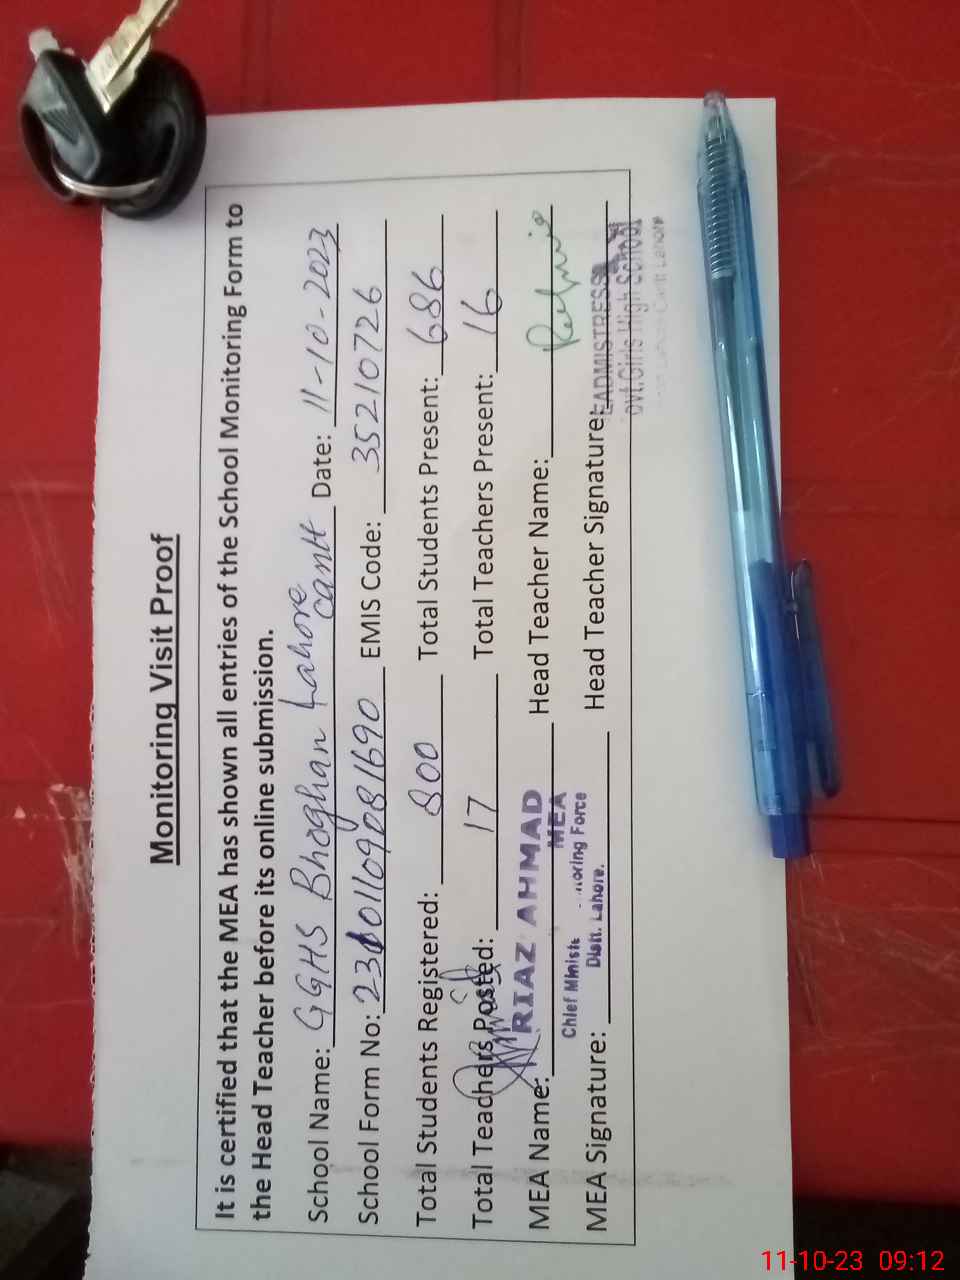 Monitoring Visit Proof
It is certified that the MEA has shown all entries of the School Monitoring Form to
the Head Teacher before its online submission.
School Name: GGHS Bhoghan Lahore Cantt Date: 11-10-2023
School Form No: 23101109081690 EMIS Code: 35210726
Total Students Registered: 800 Total Students Present: 686
Total Teachers Posted: 17 Total Teachers Present: 16
MEA Name: RIAZ AHMAD Head Teacher Name:
MEA
Chief Ministe oring Force
MEA Signature: Distt. Lahore. Head Teacher Signature:
EADMISTRESS
ovt.Girls High School
Cantt Lahore
11-10-23 09:12